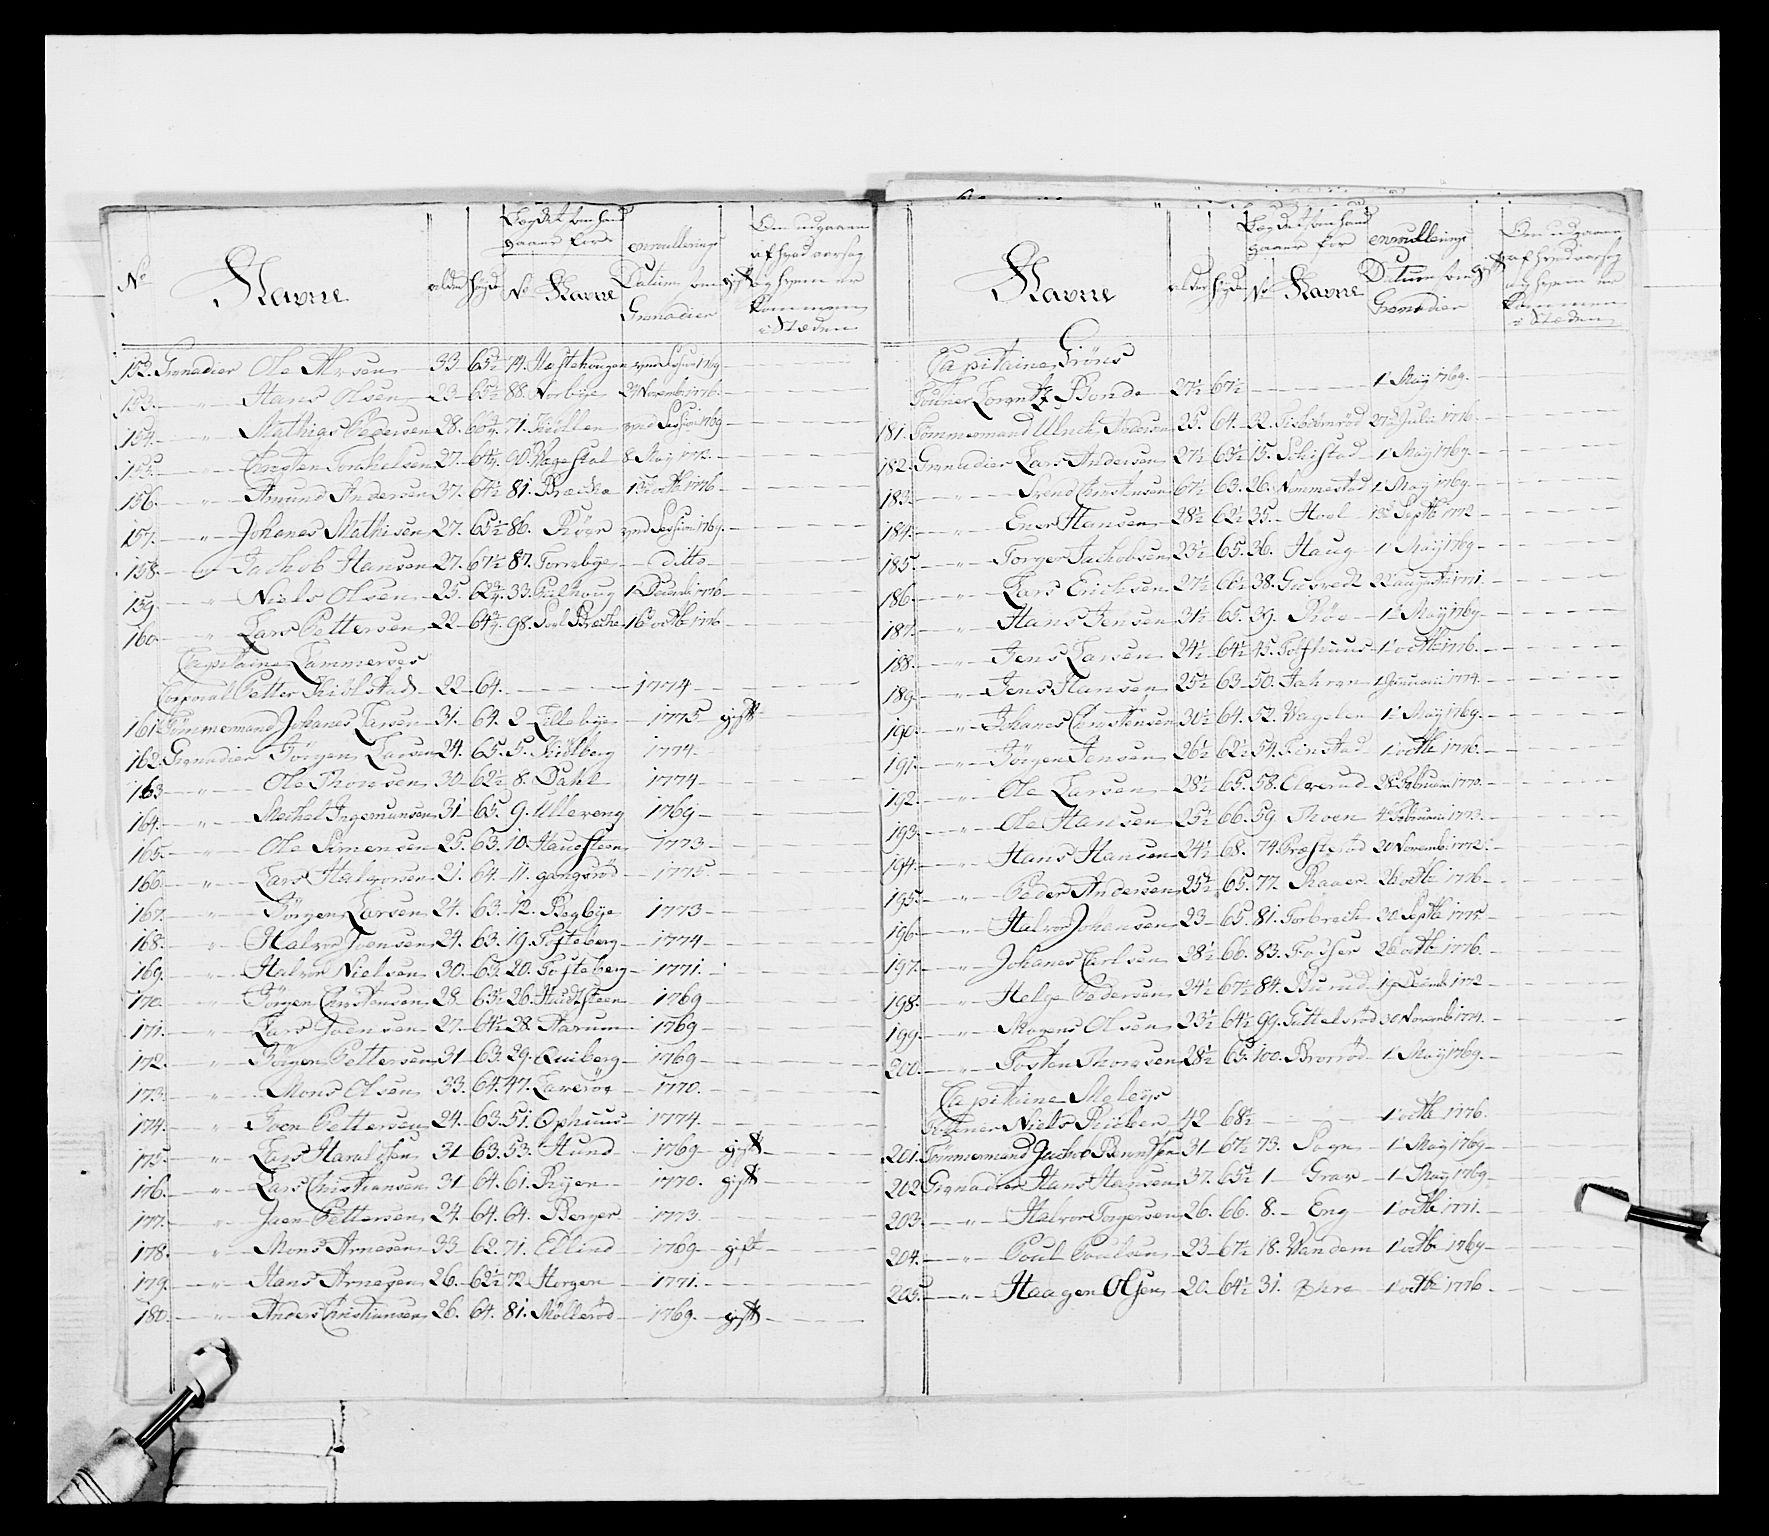 No Navne alder høyde Lægdet som hand gaaer for No Navne enroullerings Datum som Grenadier gift Om udgaaen af hvad aarsag og hvem er kommen i Stæden
152. Grenadier Ole Arsen 33 65½ 74. Næstehougen ved Session 1769
153. " Hans Olsen 23 65½ 88. Norbye 24 Novemb: 1776.
154. " Mathias Pedersen 28. 66¾ 71. Kiollen ved Session 1769
155. " Torchelsen 27. 64¾ 90. 8 May 1772.
156. " Amund Andersen 37. 67½ 81. Bræcke 13 octbr 1776
157. " Johanes Mathisen 27. 65½ 86. Röer ved Session 1769.
158. " Jachob Hansen 27. 67½ 87. Tornbye ditto
159. " Niels Olsen 25. 62¾ 33. 1 Decemb 1776
160. " Lars Pettersen 22 64¾ 98. 16 octbr 1776
Capitaine Lammerses
Corporal Petter Kiølstad 22 64. 1774
161. Tømmermand Johanes Larsen 31. 64. 2 Lillebye 1775 gift
162. Grenadier Jörgen Larsen 24. 65. 5. Kiölberg 1774
163 Ole Thorsen 30. 62½ 8. Dahl 1774
164. " Mechel Ingemunsen 31 65. 9. Ullereng 1769
165. " Ole Simensen 25. 63. 10. Haugsteen 1773
166. " Lars Halvorsen 21. 64. 11. gangsröd 1775.
167. " Jörgen Larsen 24. 63. 12. Begbye 1773
168. " Halvor Jensen 24. 63. 19. Tofteberg 1774
169. " Halvor Nielsen 30. 63. 20. Tofteberg 1771.
170. " Jörgen Christensen 28. 63½ 26. 1769
171. " Lars Joensen 27. 64½ 28. Aarum 1769
172. " Börger Pettersen 31 63. 29. Quiberg 1769
173. " Mons Olsen 33. 64. 47. 1770.
174. " Joen Pettersen 24. 63. 51. Ophuus 1774.
175. " Lars Haraldsen 31 63. 53. Hund 1769 gift
176. " Lars Christiansen 31 64. 61. Ryen 1770. gift
177. " Joen Pettersen 24. 64. 64. Berger 1773.
178. " Mons Arnesen 33 62. 71. Edlind 1769 gift
179. " Hans Arnesen 26. 62½ 72. Horgen 1771.
180. " Anders Christiansen 26. 64. 81. Møllerød 1769. gift
Navne alder høyde Lægdet som hand gaaer for No Navne enroullerings Datum som Grenadier gift Om udgaaen af hvad aarsag og hvem er kommen i Stæden
Capitaine Gröns
Lorentz Bonde 27½ 67½ 1 May 1769.
181. Tømmermand Ulrich 25. 64. 22. 27 Julii 1776.
182. Grenadier Lars Andersen 27½ 63½ 15. Schistad 1 May 1769.
183. " Svend Christensen 67½ 63. 26. Nommestad 1 May 1769.
184. " Ener Hansen 28½ 62½ 35. Hoel 13 Septbr 1772
185. " Torger Jachobsen 23½ 65. 36. Haug 1 May 1769
186. " Lars Erichsen 27½ 66½ 38. 22 augusti 1771.
187. " Hans Jensen 31½ 65. 39. Röe 1 May 1769
188. " Jens Larsen 24½ 64½ 45. Tofthuus 1 octbr 1776.
189. " Jens Hansen 25½ 63 50. 1 Januarii 1774.
190. " Johanes Christensen 30½ 64. 52. Vagelen 1 May 1769.
191. " Jörgen Jensen 26½ 62½ 54. Finstad 1 octbr 1776.
192. " Ole Larsen 28½ 65. 58. Elverud 28 Februarii 1770.
193. " Ole Hansen 25½ 66. 59. Thoen 4 Februarii 1773.
194. " Hans Hansen 24½ 68. 74. Præstrud 20 Novemb: 1772.
195. " Peder Andersen 25½ 65. 77. Raaer 26 octbr 1776
196. " Halvor Johansen 23 65. 81. Torbreck 30 Septbr 1775
197. " Johanes Carlsen 28½ 66. 83. Fosser 26 octbr 1776.
198. " Helge Pedersen 24½ 67½ 84. Burud 19 Decemb 1772
199. " Mogens Olsen 23½ 64½ 99. Guttelsrød 30 Novemb 1774.
200. " Tosten Thorsen 28½ 65. 100. Brorrød 1 May 1769.
Capitaine Meleys
Niels Rieber 42 68½ 1 octbr 1776.
201. Tømmermand Jachob Berentsen 31 67½ 73. Sogn 1 May 1769
202 Grenadier Hans Hansen 37. 65½ 1 Grav 1 May 1769
203. " Halvor Torgersen 26. 66. 8. Eng 1 octbr 1771.
204. " Poul Poulsen 23 67½ 18. Vandem 1 octbr 1769
205. " Haagen Olsen 20. 64½ 31. 1 octbr 1776